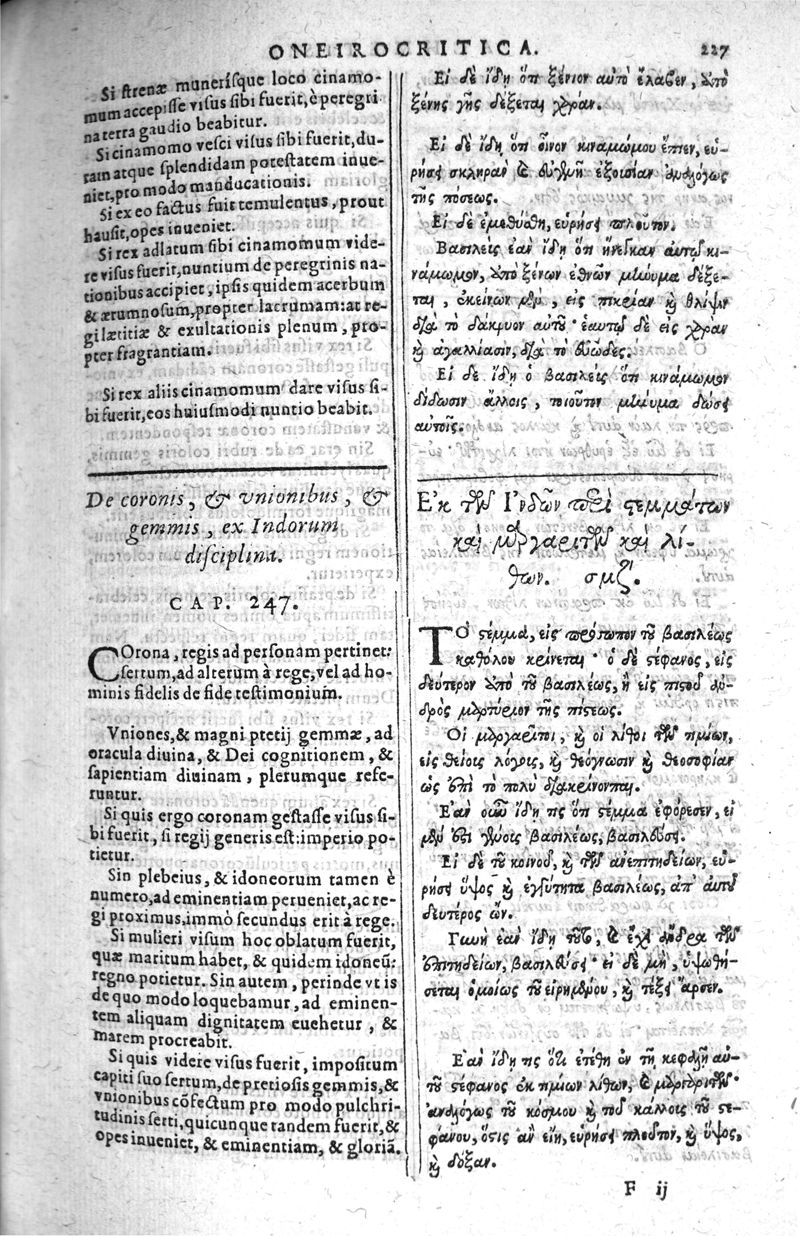 ONEIROCRITICA. 227
Si strenæ munerisque loco cinamo-
mum accepisse visus sibi fuerit, è peregri
na terra gaudio beabitur.
Si cinamomo vesci visus sibi fuerit, du-
ram atque splendidam potestatem inue-
niet, pro modo manducationis.
Si ex eo factus fuit temulentus, prout
hausit, opes inueniet.
Si rex adlatum sibi cinamomum vide-
re visus fuerit, nuntium de peregrinis na-
tionibus accipiet, ipsis quidem acerbum
& ærumnosum, propter lacrumam: at re-
gi lætitiæ & exultationis plenum, pro-
pter fragrantiam.
Si rex aliis cinamomum dare visus si-
bi fuerit, eos huiusmodi nuntio beabit.
De coronis, & vnionibus, &
gemmis, ex Indorum
disciplina.
CAP. 247.
COrona, regis ad personam pertinet:
sertum, ad alterum à rege, vel ad ho-
minis fidelis de fide testimonium.
Vniones, & magni pretij gemmæ, ad
oracula diuina, & Dei cognitionem, &
sapientiam diuinam, plerumque refe-
runtur.
Si quis ergo coronam gestasse visus si-
bi fuerit, si regij generis est: imperio po-
tietur.
Sin plebeius, & idoneorum tamen è
numero, ad eminentiam perueniet, ac re-
gi proximus, immò secundus erit à rege.
Si mulieri visum hoc oblatum fuerit,
quæ maritum habet, & quidem idoneū:
regno potietur. Sin autem, perinde vt is
de quo modo loquebamur, ad eminen-
tem aliquam dignitatem euehetur, &
marem procreabit.
Si quis videre visus fuerit, impositum
capiti suo sertum, de pretiosis gemmis, &
vnionibus cōfectum pro modo pulchri-
tudinis serti, quicunque tandem fuerit, &
opes inueniet, & eminentiam, & gloriā.
Εἰ δὲ ἴδῃ ὅτι ξένιον αὐτὸ ἔλαβεν, ἀπὸ
ξένης γῆς δέξεται χαράν.
Εἰ δὲ ἴδῃ ὅτι οἶνον κιναμώμου ἔπιεν, εὑ-
ρήσει σκληρὰν καὶ εὐγενῆ ἐξουσίαν ἀναλόγως
τῆς πόσεως.
Εἰ δὲ ἐμεθύσθη, εὑρήσει πλοῦτον.
Βασιλεὺς ἐὰν ἴδῃ ὅτι ἤνεγκαν αὐτῷ κι-
νάμωμον, ἀπὸ ξένων ἐθνῶν μήνυμα δέξε-
ται, ἐκείνων μὲν, εἰς πικρίαν καὶ θλίψιν
διὰ τὸ δάκρυον αὐτοῦ· ἑαυτῷ δὲ εἰς χαρὰν
καὶ ἀγαλλίασιν, διὰ τὸ εὐῶδες.
Εἰ δὲ ἴδῃ ὁ βασιλεὺς ὅτι κινάμωμον
δίδωσιν ἄλλοις, τοιοῦτον μήνυμα δώσει
αὐτοῖς.
Ἐκ τῶν Ἰνδῶν περὶ στεμμάτων
καὶ μαργαριτῶν καὶ λί-
θων. σμζʹ.
ΤΟ στέμμα, εἰς πρόσωπον τοῦ βασιλέως
καθόλου κρίνεται· ὁ δὲ στέφανος, εἰς
δεύτερον ἀπὸ τοῦ βασιλέως, ἢ εἰς πιστοῦ ἀν-
δρὸς μαρτύριον τῆς πίστεως.
Οἱ μαργαρῖται, καὶ οἱ λίθοι τῶν τιμίων,
εἰς θείους λόγους, καὶ θεόγνωσιν καὶ θεοσοφίαν
ὡς ἐπὶ τὸ πολὺ διακρίνονται.
Ἐὰν οὖν ἴδῃ τις ὅτι στέμμα ἐφόρεσεν, εἰ
μὲν ἐστι γένους βασιλέως, βασιλεύσει.
Εἰ δὲ τοῦ κοινοῦ, καὶ τῶν ἀνεπιτηδείων, εὑ-
ρήσει ὕψος καὶ ἐγγύτητα βασιλέως, ἀπ' αὐτοῦ
δεύτερος ὤν.
Γυνὴ ἐὰν ἴδῃ τοῦτο, καὶ ἔχει ἄνδρα τῶν
ἐπιτηδείων, βασιλεύσει· εἰ δὲ μὴ, ὑψωθή-
σεται ὁμοίως τοῦ εἰρημένου, καὶ τέξει ἄρσεν.
Ἐὰν ἴδῃ τις ὅτι ἐτέθη ἐν τῇ κεφαλῇ αὐ-
τοῦ στέφανος ἐκ τιμίων λίθων, καὶ μαργαριτῶν
ἀναλόγως τοῦ κόσμου καὶ τοῦ κάλλους τοῦ στε-
φάνου, ὅστις ἂν εἴη, εὑρήσει πλοῦτον, καὶ ὕψος,
καὶ δόξαν.
F ij